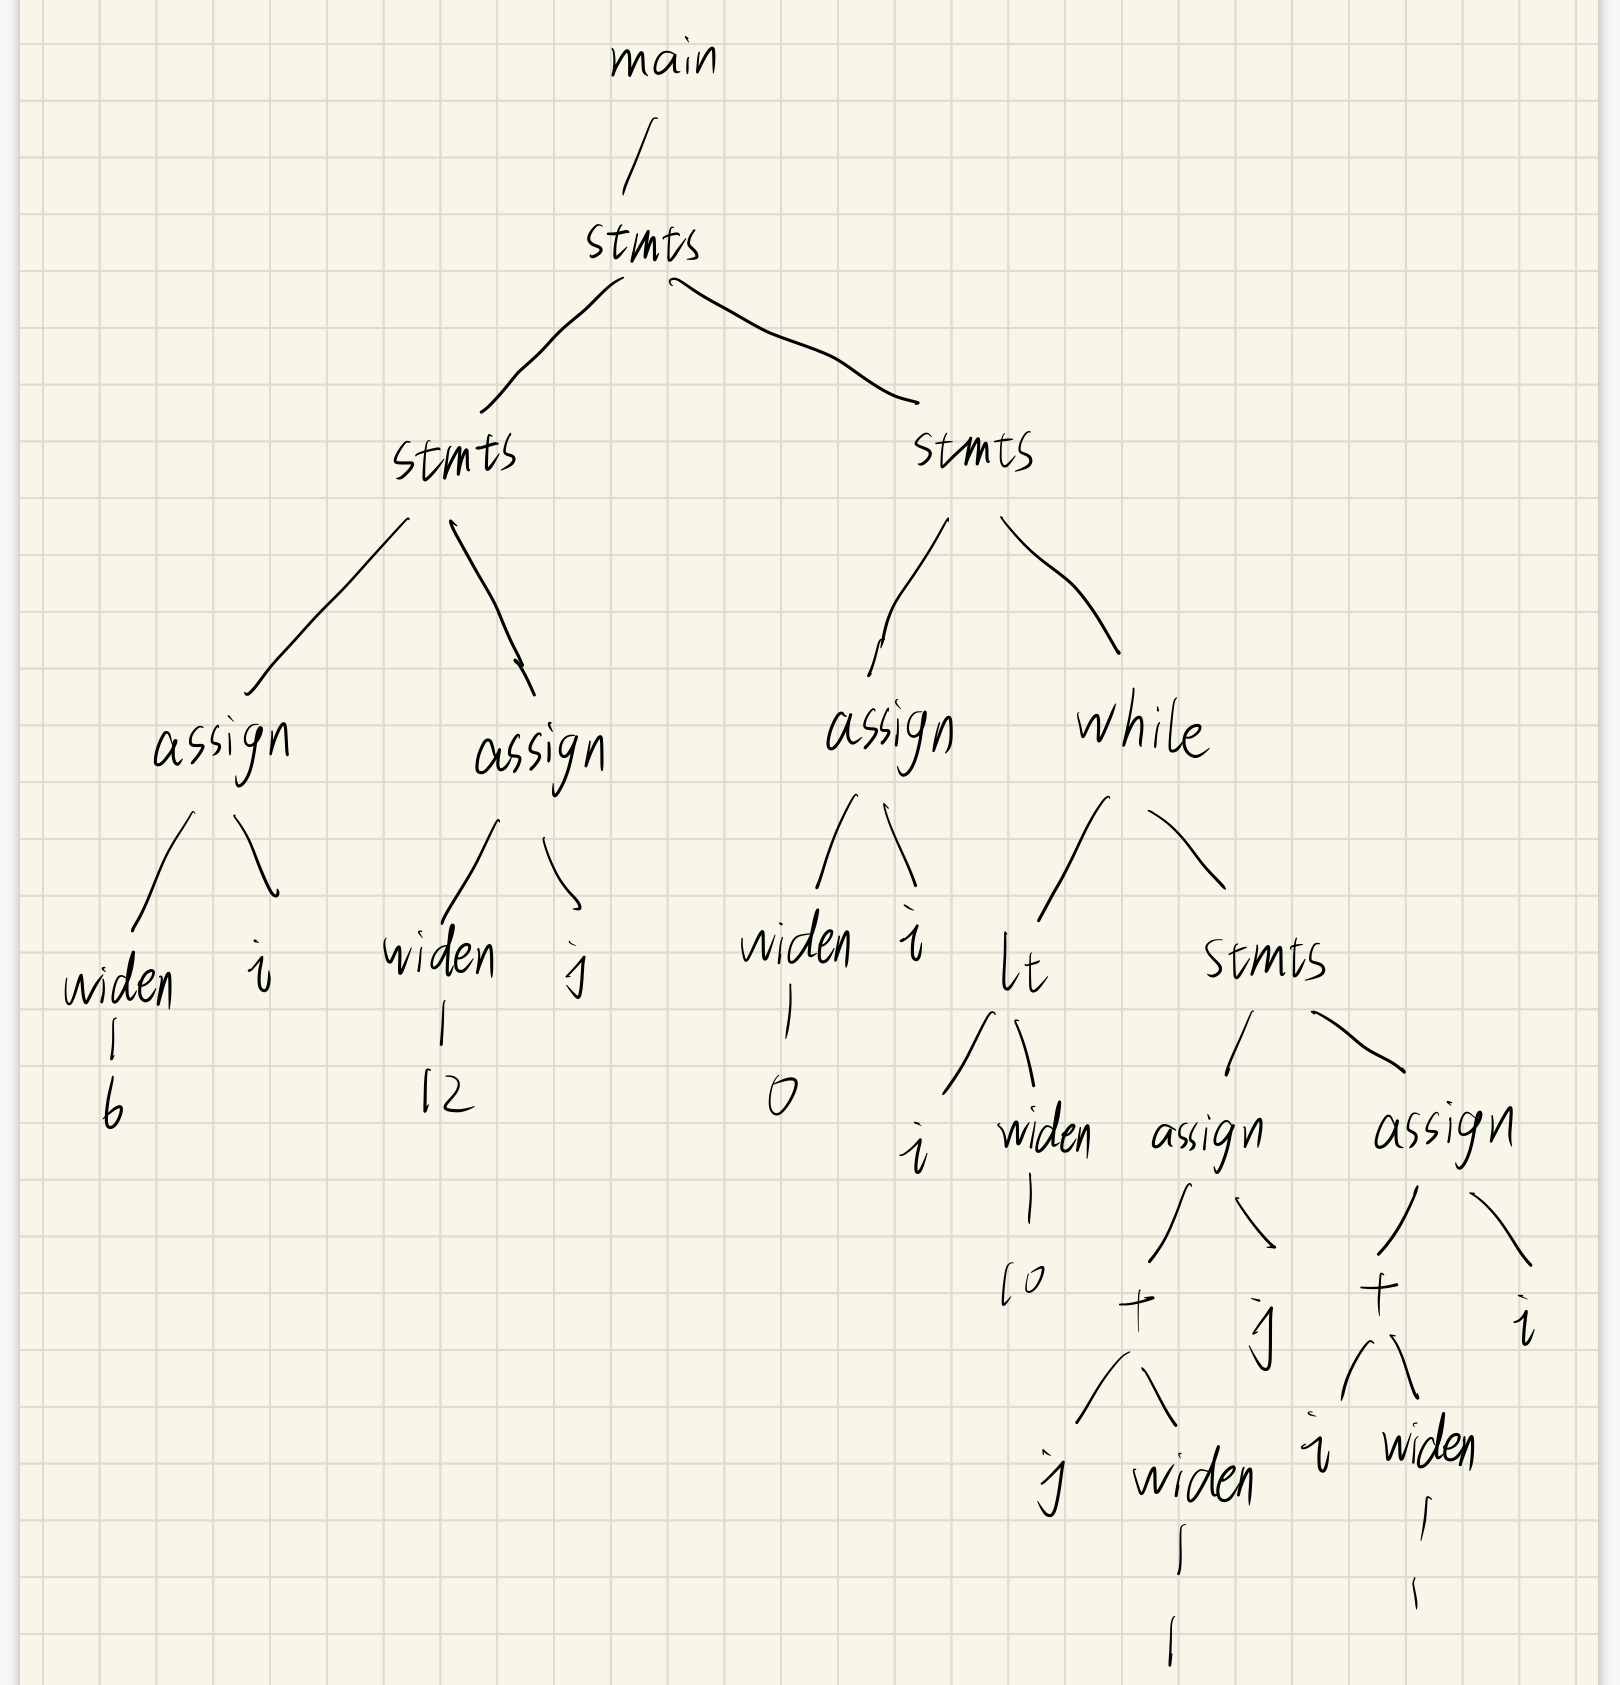 main
stmts
stmts stmts
assign assign assign while
widen i widen j widen i lt stmts
6 12 0 i widen assign assign
10 + j + i
j widen i widen
1 1